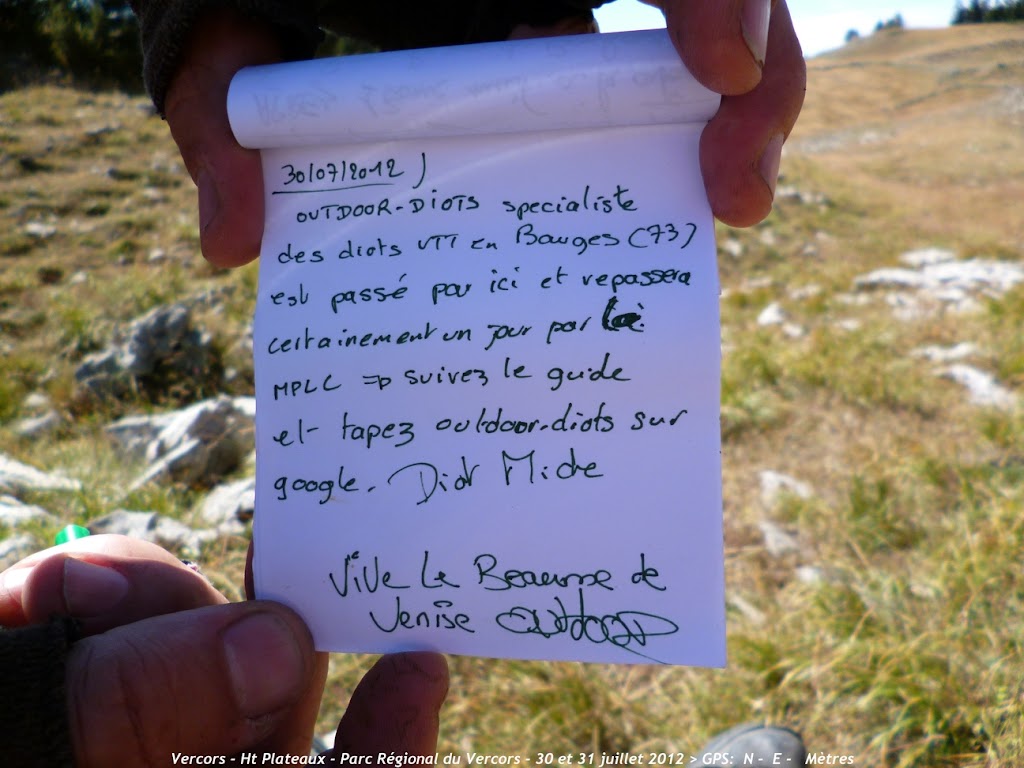 30/07/2012 J
OUTDOOR-DIOTS specialiste
des diots VTT en Bauges (73)
est passé par ici et repassera
certainement un jour par là.
MPLC => suivez le guide
et tapez outdoor-diots sur
google. Diot Miche
ViVe Le Beaume de
Venise OUTDOOR
Vercors - Ht Plateaux - Parc Régional du Vercors - 30 et 31 juillet 2012 > GPS: N - E - Mètres